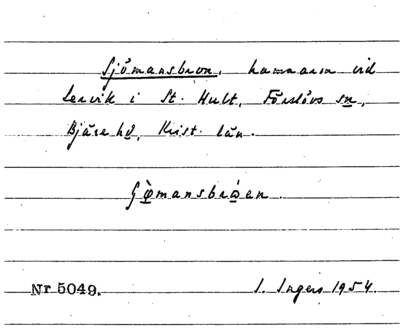 Sjömansbron, hamnarm vid
Lervik i St. Hult, Förslövs sn,
Bjäre hd, Krist. län.
Nr 5049. I. Ingers 1954.